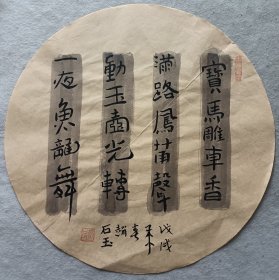 寶馬雕車香
滿路鳳莆聲
動玉壺光轉
一夜魚龍舞
戊戌
春
石玉